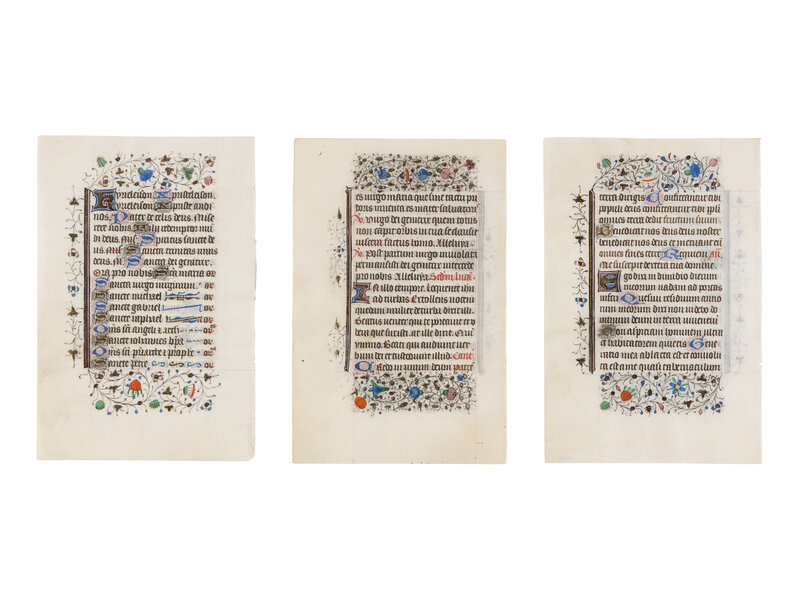 Kyrieleison Xpisteleison
kyrieleison Xpiste audi
nos. Pater de celis deus. Mise
rere nobis. Fili redemptor mu
di deus. Mis Spiritus sancte de
us. Mis Sancta trinitas unus
deus. Mis Sancta dei genitrix.
Ora pro nobis Sancta maria or
Sancta virgo virginum. or
Sancte michael or
Sancte gabriel or
Sancte raphael or
Oms sci angeli et archi or
Sancte iohannes bpta or
Oms sci priarche et prophe or
Sancte petre or
es virgo maria que sine tactu pu
doris inventa es mater salvatoris
V. virgo dei genitrix quem totus
non capit orbis in tua se clausit
viscera factus homo. Alleluya.
V. post partum virgo inviolata
permansisti dei genitrix intercede
pro nobis Alleluya Scdm lucā
In illo tempore. Loquente ihu
ad turbas Extollens vocem
quedam mulier de turba dixit illi.
Beatus venter qui te portavit et u
bera que suxisti. at ille dixit. Qui
ymmo. Beati qui audiunt ver
bum dei et custodiunt illud.
Credo in unum deum patrē
terra dirigis Confiteantur tibi
populi deus confiteantur tibi ppli
omnes terra dedit fructum suum.
Benedicat nos deus deus noster
benedicat nos deus et metuant eū
omnes fines terre Requiem. an.
Me suscepit dextera tua domine.
Ego dixi in dimidio dierum
meorum vadam ad portas
inferi Quesivi residuum anno
rum meorum dixi non videbo do
minum deum in terra viventium
Non aspiciam hominem ultra
et habitatorem quietis Gene
ratio mea ablata est et convolu
ta est a me quasi tabernaculum